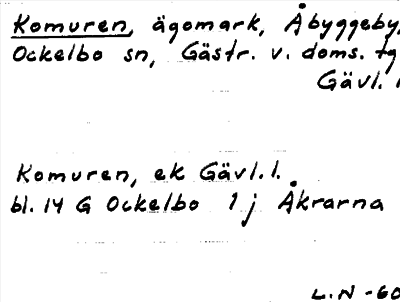 Komuren, ägomark, Åbyggeby,
Ockelbo sn, Gästr. v. doms. tg
Gävl. l
Komuren, ek Gävl. l.
bl. 14 G Ockelbo 1 j Åkrarna
L.N -60